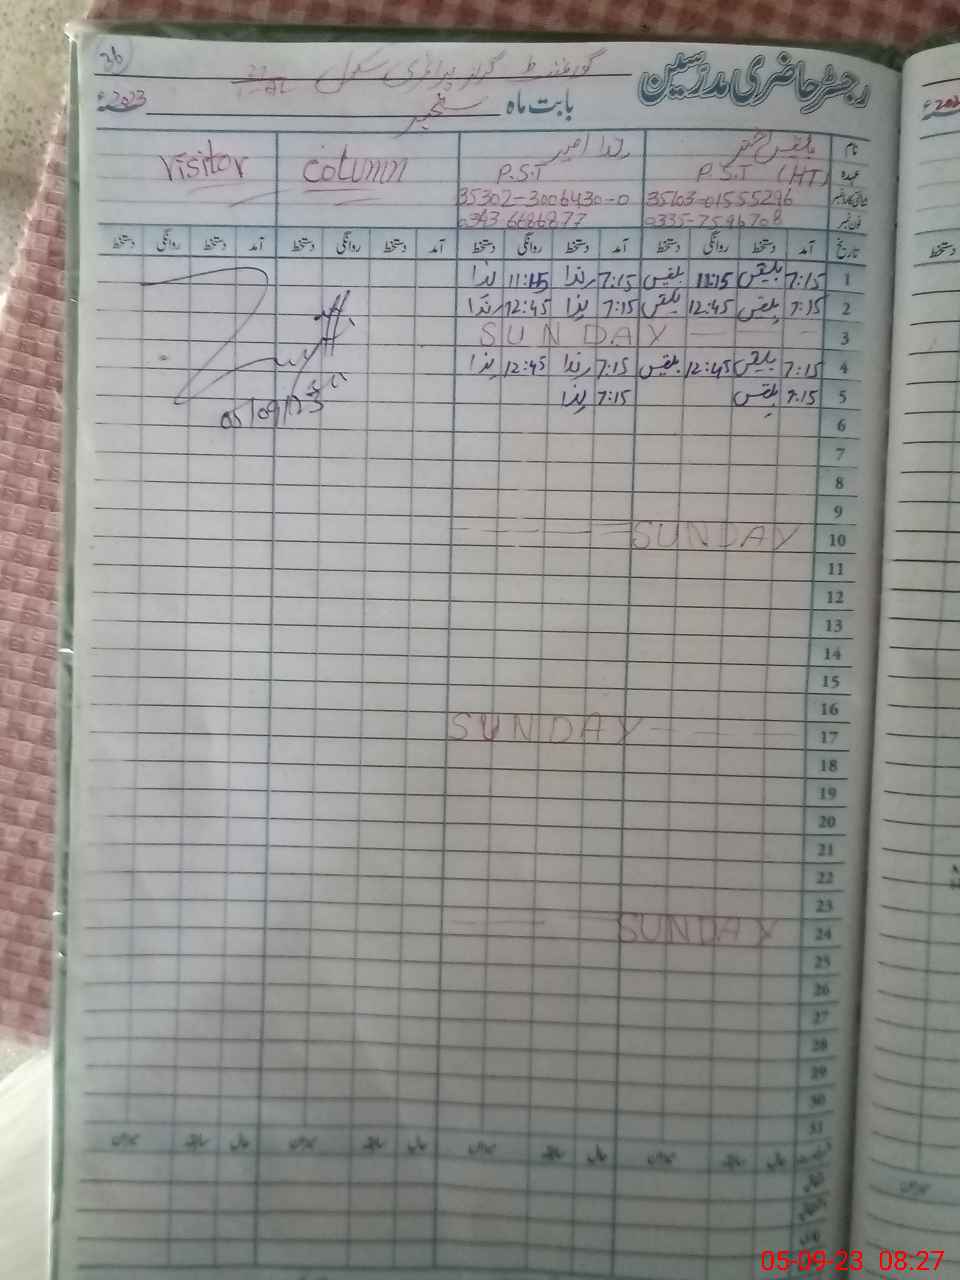 36
رجسٹر حاضری مدرسین
گورنمنٹ گرلز پرائمری سکول
بابت ماہ ستمبر 2023ء
نام بلقیس اختر ندا امیر Column Visitor
عہدہ P.S.T (HT) P.S.T
35302-3006430-0
فون نمبر 0335-7596708 0343-6686877
تاریخ آمد دستخط روانگی دستخط آمد دستخط روانگی دستخط آمد دستخط روانگی دستخط آمد دستخط روانگی دستخط
1 7:15 بلقیس 11:15 بلقیس 7:15 ندا 11:15 ندا
2 7:15 بلقیس 12:45 بلقیس 7:15 ندا 12:45 ندا
3 SUNDAY
4 7:15 بلقیس 12:45 بلقیس 7:15 ندا 12:45 ندا
5 7:15 بلقیس 7:15 ندا
05/09/23
6
7
8
9
10 SUNDAY
11
12
13
14
15
16
17 SUNDAY
18
19
20
21
22
23
24 SUNDAY
25
26
27
28
29
30
31
میزان سابقہ حال میزان سابقہ حال میزان سابقہ حال میزان سابقہ حال
05-09-23 08:27